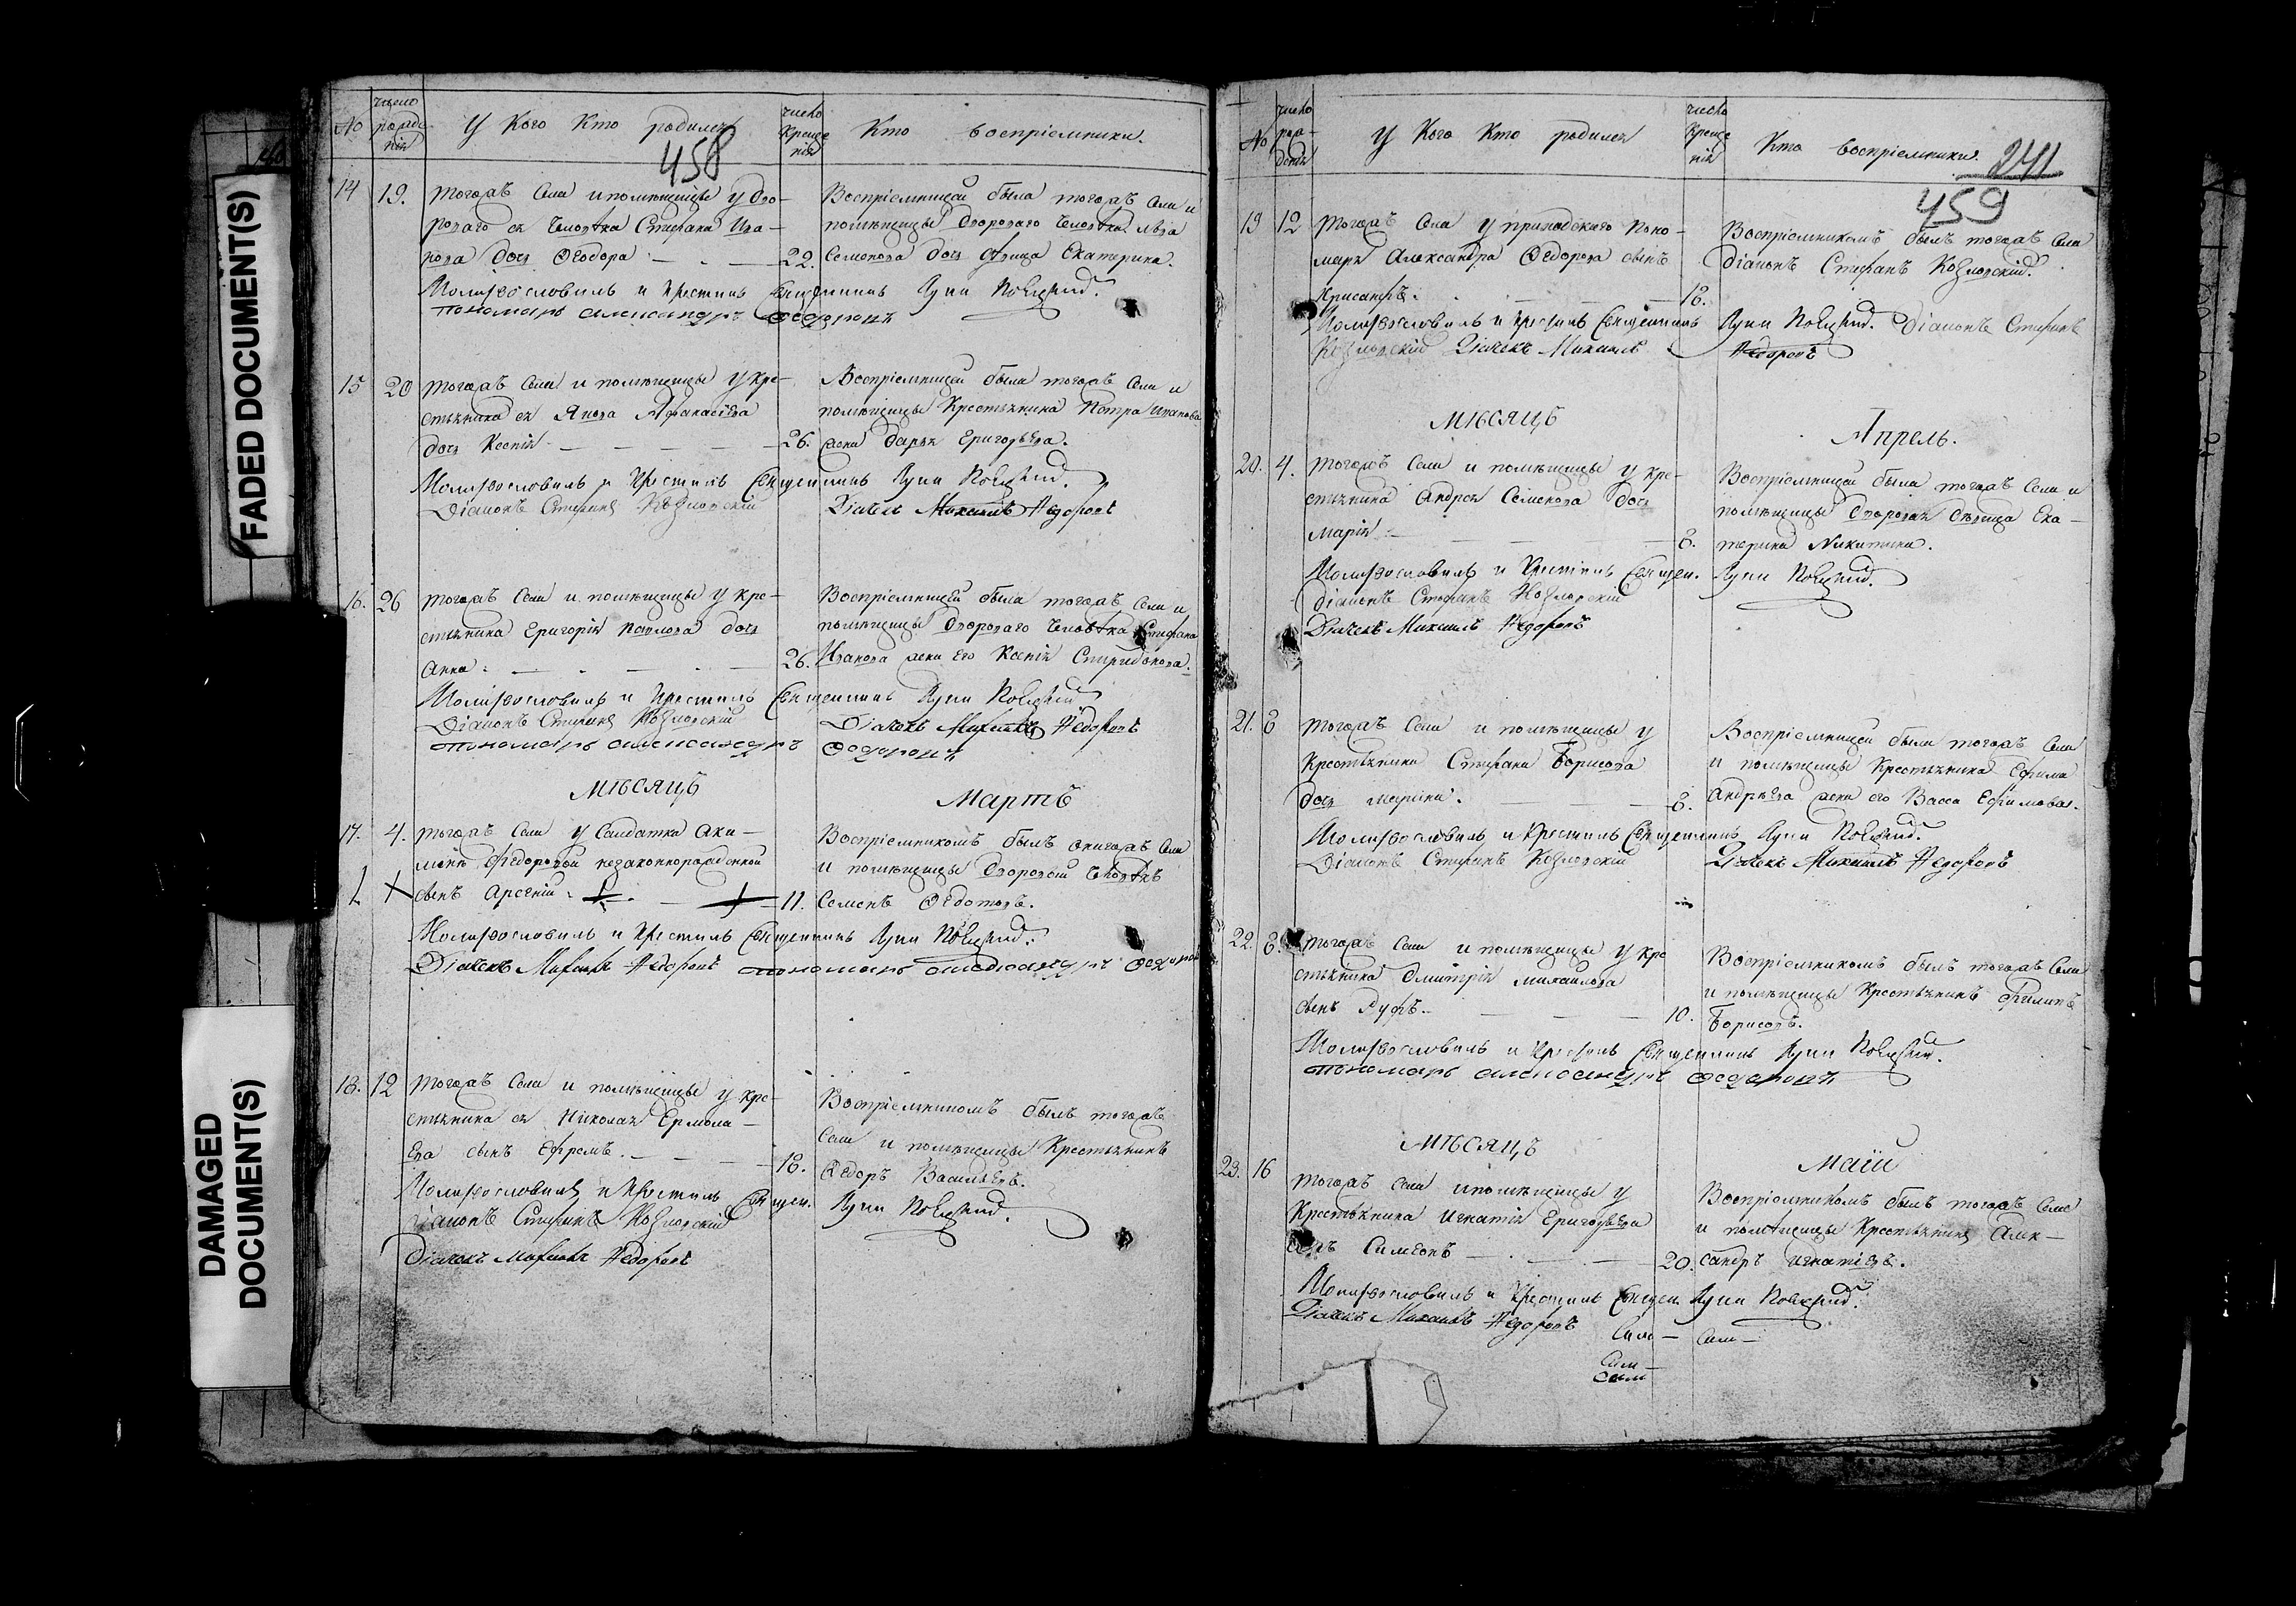 FADED DOCUMENT(S)
DAMAGED
DOCUMENT(S)
№
число
рожде
нія
У Кого Кто родился
число
Креще
нія
Кто воспріемники.
458
14 19. тогожъ Села и помѣщицы у дво-
роваго Стефана Ива-
нова дочь Ѳеодора 22.
Воспріемницей была тогожъ Села и
помѣщицы двороваго
Семенова дочь дѣвица Екатерина.
Молитвословилъ и Крестилъ Священникъ Луки
пономарь александръ Ѳедоровъ
15 20 тогожъ Села и помѣщицы у кре-
стьянина Якова Афанасьева
дочь Ксенія 26.
Воспріемницей была тогожъ Села и
помѣщицы Крестьянина Петра Иванова
жена дарья Григорьева.
Молитвословилъ и Крестилъ Священникъ Луки
Діаконъ Стефанъ Козловскій Дьячекъ Михаилъ Федоровъ
16. 26 тогожъ Села и помѣщицы у кре-
стьянина Григорія Павлова дочь
анна. 26.
Воспріемницей была тогожъ Села и
помѣщицы двороваго Стефана
Иванова жена его Ксенія Спиридонова.
Молитвословилъ и Крестилъ Священникъ Луки
Діаконъ Стефанъ Козловскій Дьячекъ Михаилъ Федоровъ
пономарь александръ Ѳедоровъ
Мѣсяцъ Мартъ
17. 4. тогожъ Села у Салдатки Аки-
лины Федоровой незаконнорожденной
сынъ Арсеній 11.
Воспріемникомъ былъ онагожъ Села
и помѣщицы дворовой
Семенъ Ѳедотовъ.
Молитвословилъ и Крестилъ Священникъ Луки
Дьячекъ Михаилъ Федоровъ пономарь александръ Ѳедоровъ
18. 12 тогожъ Села и помѣщицы у кре-
стьянина Николая Ермола-
ева сынъ Ефремъ. 18.
Воспріемникомъ былъ тогожъ
Села и помѣщицы Крестьянинъ
Ѳедоръ Васильевъ.
Молитвословилъ и Крестилъ Священ. Луки
діаконъ Стефанъ Козловскій
Дьячекъ Михаилъ Федоровъ
№
число
рож-
денія
У Кого Кто родился
число
Креще
нія
Кто воспріемники.
241
459
19 12 тогожъ Села у приходскаго поно-
маря Александра Ѳедорова сынъ
Хрисанфъ. 18.
Воспріемникомъ былъ тогожъ Села
діаконъ Стефанъ Козловскій.
Молитвословилъ и Крестилъ Священникъ Луки Діаконъ Стефанъ
Козловскій Дьячекъ Михаилъ Федоровъ
Мѣсяцъ Апрель.
20. 4. тогожъ Села и помѣщицы у кре-
стьянина Андрея Семенова дочь
марія 8.
Воспріемницей была тогожъ Села и
помѣщицы дворовая дѣвица Ека-
терина Никитина.
Молитвословилъ и Крестилъ Священ. Луки
діаконъ Стефанъ Козловскій
Дьячекъ Михаилъ Федоровъ
21. 8 тогожъ Села и помѣщицы у
Крестьянина Стефана Борисова
дочь марина. 8.
Воспріемницей была тогожъ Села
и помѣщицы Крестьянина Ефима
андрѣева жена его Васса Ефимова.
Молитвословилъ и Крестилъ Священникъ Луки
Діаконъ Стефанъ Козловскій Дьячекъ Михаилъ Федоровъ
22. 8. тогожъ Села и помѣщицы у кре
стьянина Дмитрія михайлова
сынъ Руфъ. 10.
Воспріемникомъ былъ тогожъ Села
и помѣщицы Крестьянинъ Филипъ
Борисовъ.
Молитвословилъ и Крестилъ Священникъ Луки
пономарь александръ Ѳедоровъ
Мѣсяцъ Маій
23. 16 тогожъ Села и помѣщицы у
Крестьянина Игнатія Григорьева
сынъ Симеонъ 20.
Воспріемникомъ былъ тогожъ Села
и помѣщицы Крестьянинъ Алек-
сандръ Игнатіевъ.
Молитвословилъ и Крестилъ Священ. Луки
Дьячекъ Михаилъ Федоровъ